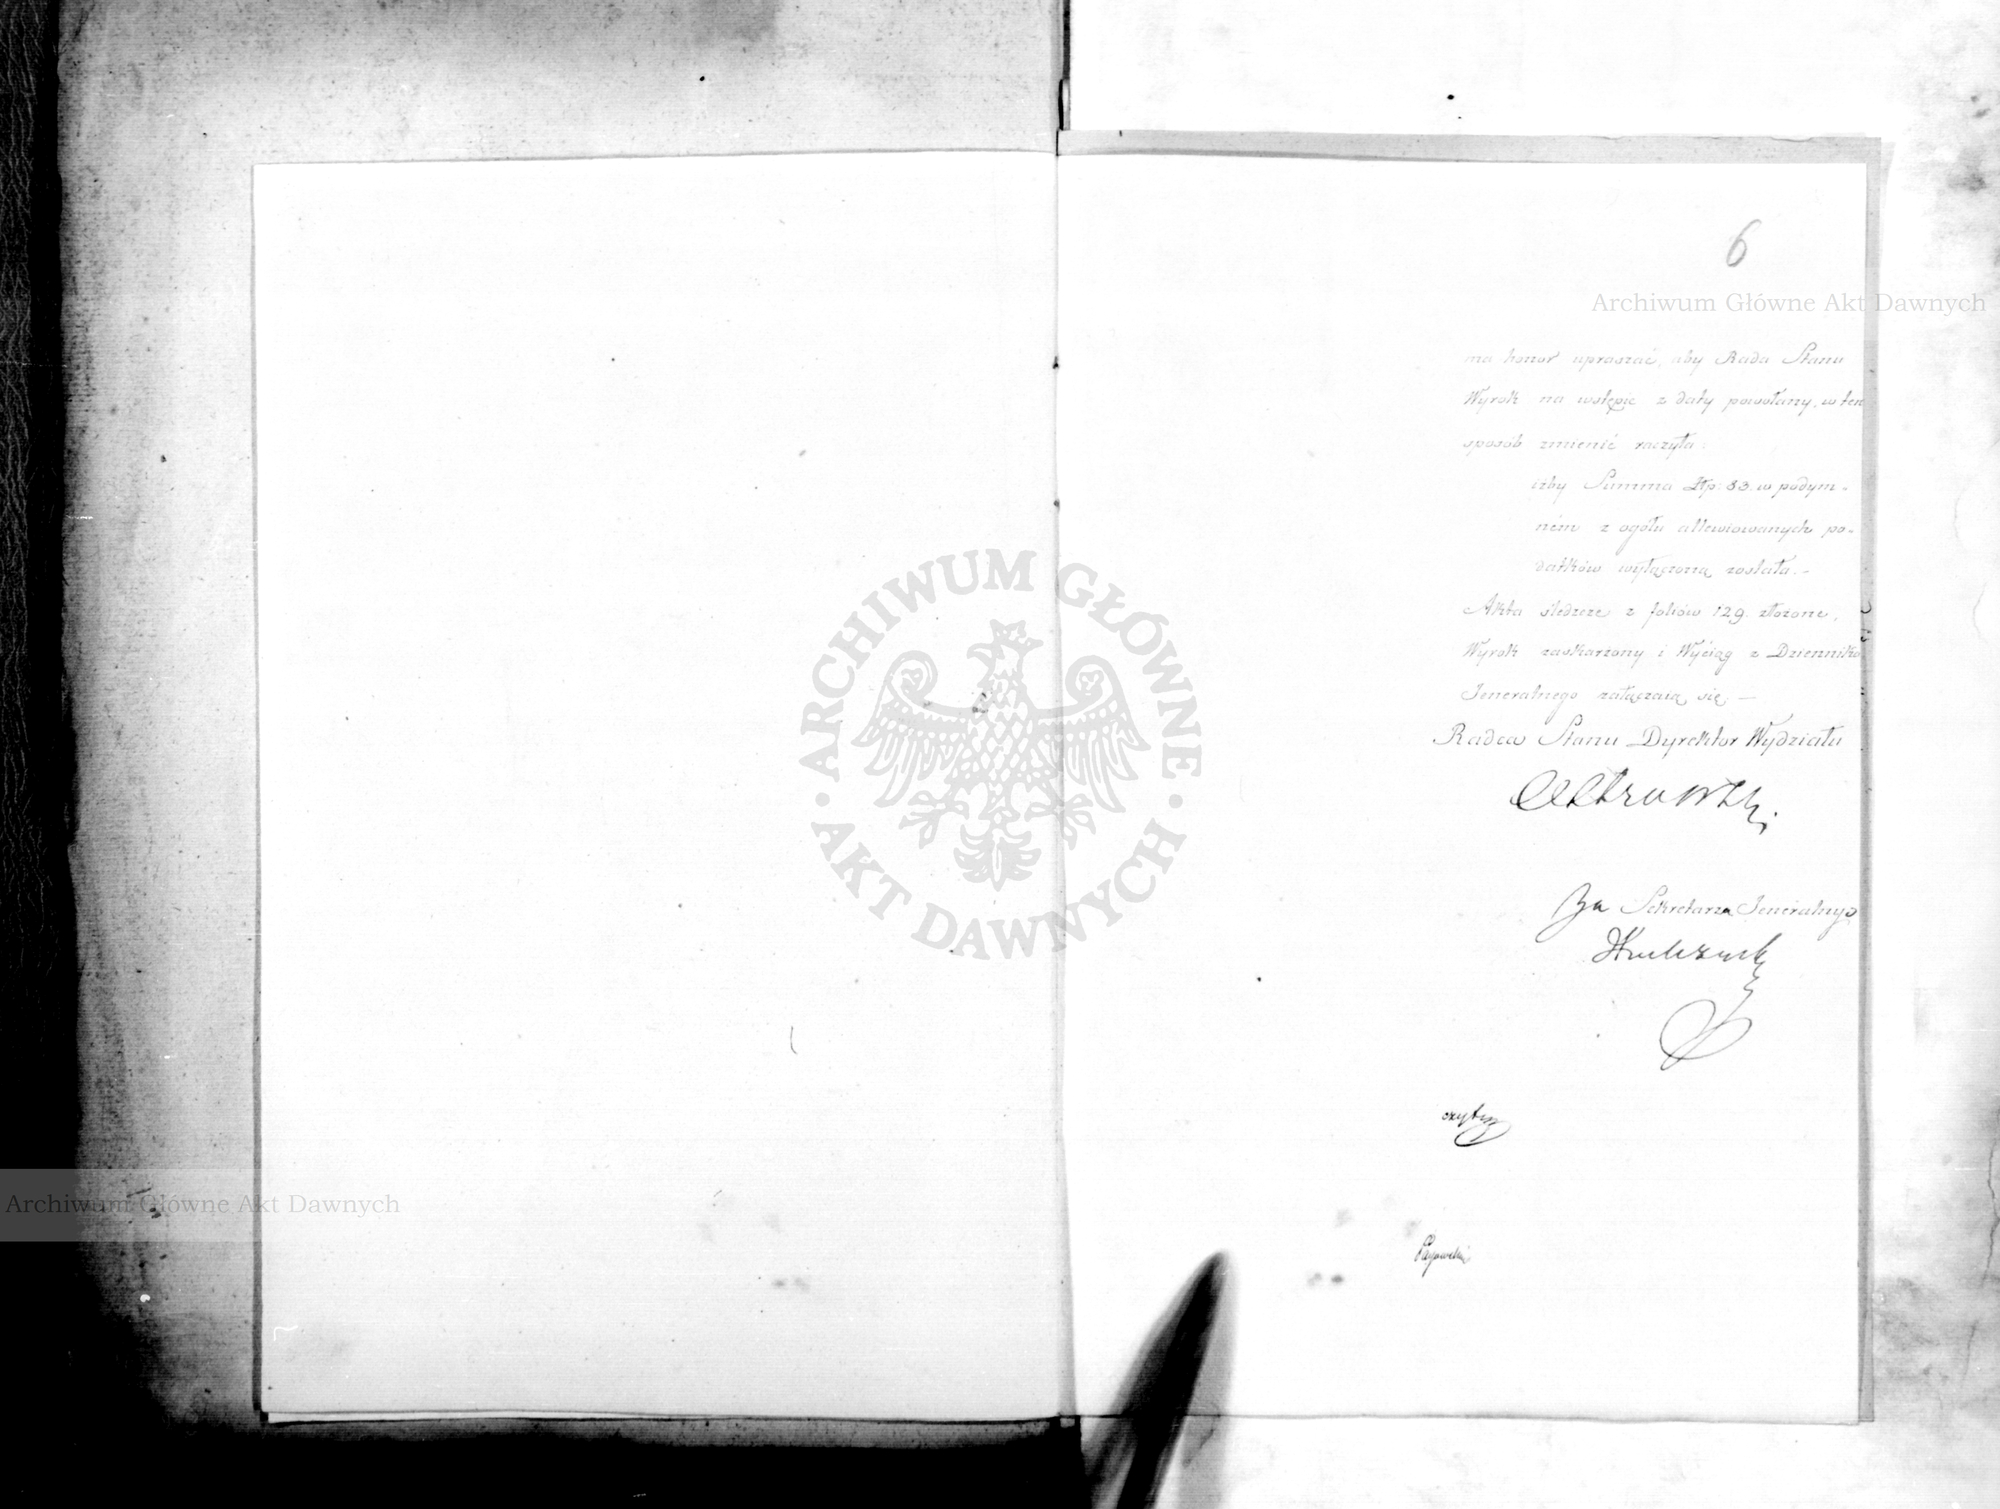 6
Archiwum Główne Akt Dawnych
ma honor upraszać, aby Rada Stanu
Wyrok na wstępie z daty powołany, w ten
sposób zmienić raczyła:
iżby Summa Złp: 83. w podym-
ném z ogółu allewiowanych po-
datków wyłączoną została.-
Akta śledcze z foliów 129. złożone,
Wyrok zaskarżony i Wyciąg z Dziennika
Jeneralnego załączaią się.—
Radca Stanu Dyrektor Wydziału
Za Sekretarza Jeneralnego
ARCHIWUM GŁÓWNE
AKT DAWNYCH
Archiwum Główne Akt Dawnych